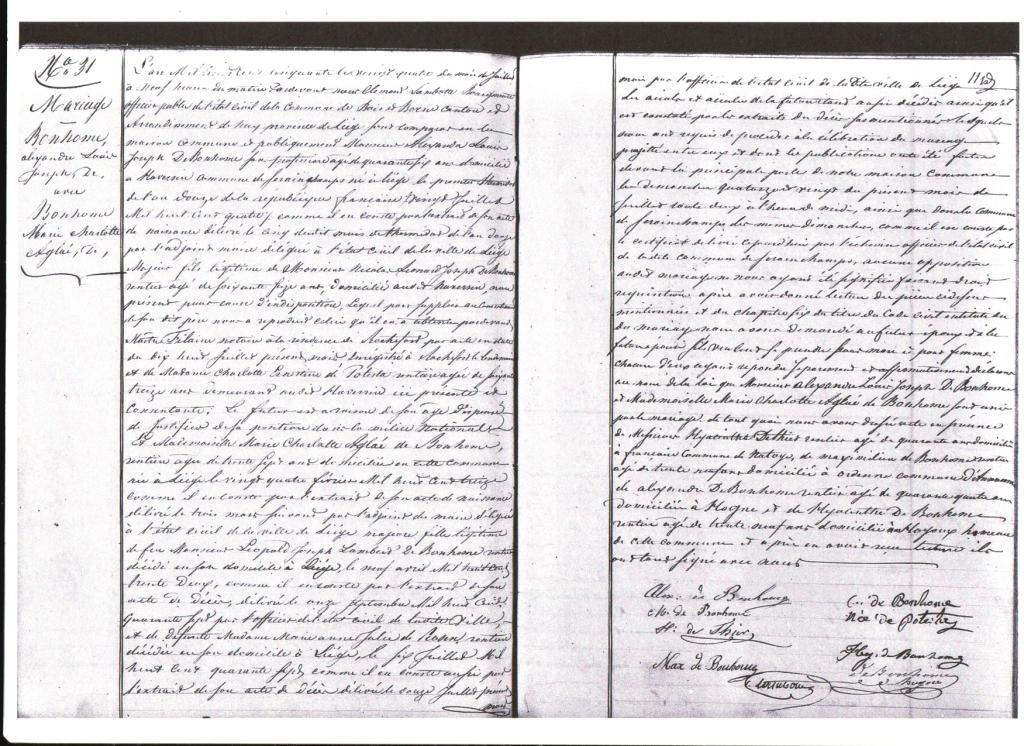 No 31
Mariage
Bonhome,
alexandre Louis
Joseph, De,
avec
Bonhome
Marie Charlotte
Aglaé, De,
L'an Mil huit cent cinquante le vingt quatre du mois de Juillet
à Neuf heures du matin Pardevant nous Clement Lambotte
officier public de l'état civil de la Commune de Bois et Borsu Canton de
Arrondissement de huy province de Liège sont comparus en la
maison commune et publiquement Monsieur Alexandre Louis
Joseph De Bonhome san profession agé de quarante six ans domicilié
à Haversin commune de Serinchamps né à Liège le premier thermidor
de l'an Douze de la république française (vingt Juillet
Mil huit Cent quatre) comme il en conste par l'extrait de son acte
de naissance délivré le cinq dudit mois de thermidor de l'an douze
par l'adjoint maire délégué à l'état civil de la ville de Liège
Majeur fils légitime de Monsieur Nicolas Leonard Joseph De Bonhome
rentier agé de soixante seize ans, domicilié audit Haversin, non
présent pour cause d'indisposition, lequel pour suppléer au consentement
de son dit père nous a reproduit celui qu'il en a obtenu pardevant
Maître Filaine notaire à la résidence de Rochefort par acte en date
du dix huit Juillet présent mois enregistré à Rochefort le lendemain
et de Madame Charlotte Ernestine De Potesta rentière agée de soixante
treize ans demeurant audit Haversin ici présente et
consentante. Le futur est à raison de son age dispensé
de justifier de sa position dans la milice Nationale
Et Mademoiselle Marie Charlotte Aglaé de Bonhome,
rentière agée de trente sept ans domiciliée en cette commune
née à Liège le vingt quatre février Mil huit Cent treize
comme il en conste par l'extrait de son acte de naissance
délivré le trois mars suivant par l'adjoint du maire délégué
à l'état civil de la ville de Liège majeure fille légitime
de feu Monsieur Leopold Joseph Lambert De Bonhome rentier
décédé en son domicile à Liège, le neuf avril Mil huit Cent
trente Deux, comme il en conste par l'extrait de son
acte de Décès, délivré le onze septembre Mil huit Cent
quarante sept par l'officier de l'état civil de ladite Ville,
et de défunte Madame Marie anne Julie de Rosen, rentière
décédée en son domicile à Liège, le six Juillet Mil
huit Cent quarante sept, comme il en conste aussi par
l'extrait de son acte de Décès délivré le douze Juillet même
mois
mois par l'officier de l'état civil de ladite ville de Liège
Les aïeuls et aïeules de la future étant aussi décédés ainsi qu'il
est constaté par les extraits des décès sus mentionnés. Lesquels
nous ont requis de procéder à la célébration du mariage
projetté entre eux et dont les publications ont été faites
devant la principale porte de notre maison Commune
les dimanches quatorze et vingt un présent mois de
Juillet toute deux à l'heure de midi, ainsi que dans la commune
de Serinchamps les mêmes dimanches, comme il en conste par
le certificat délivré aujourd'hui par l'échevin officier de l'état civil
de ladite commune de Serinchamps, aucune opposition
audit mariage ne nous ayant été signifiée faisant droit
réquisition, après avoir donné lecture des pièces ci dessus
mentionnées et du chapitre six du titre du Code Civil intitulé du
du mariage nous avons demandé au futur époux et à la
future épouse s'ils veulent se prendre pour mari et pour femme;
chacun d'eux ayant répondu séparement et affirmativement déclarons
au nom de la loi que Monsieur Alexandre Louis Joseph De Bonhome
et Mademoiselle Marie Charlotte Aglaé de Bonhome sont unis
par le mariage. de tout quoi nous avons dressé acte en présence
de Messieurs Hyacinthe De thier rentier agé de quarante ans domicilié
à francesse Commune de Natoye, de maximilien de Bonhome rentier
agé de trente neuf ans domicilié à
de alexandre De Bonhome rentier agé de quarante quatre ans
domicilié à Hogne et de Hyacinthe De Bonhome
rentier agé de trente neuf ans domicilié à hameau
de cette commune et après en avoir reçu lecture ils
ont tous signé avec nous
Alex. de Bonhome
C. de Bonhome
M. de Bonhome
née de Potesta
H. de Thier
Hy. d Bonhome
Max de Bonhome
de Bonhome
Lambotte